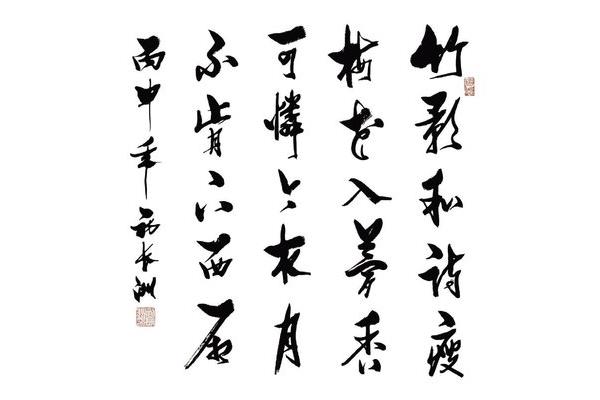 竹影和詩瘦
梅花入夢香
可憐今夜月
不肯下西厢
丙申年 長洲